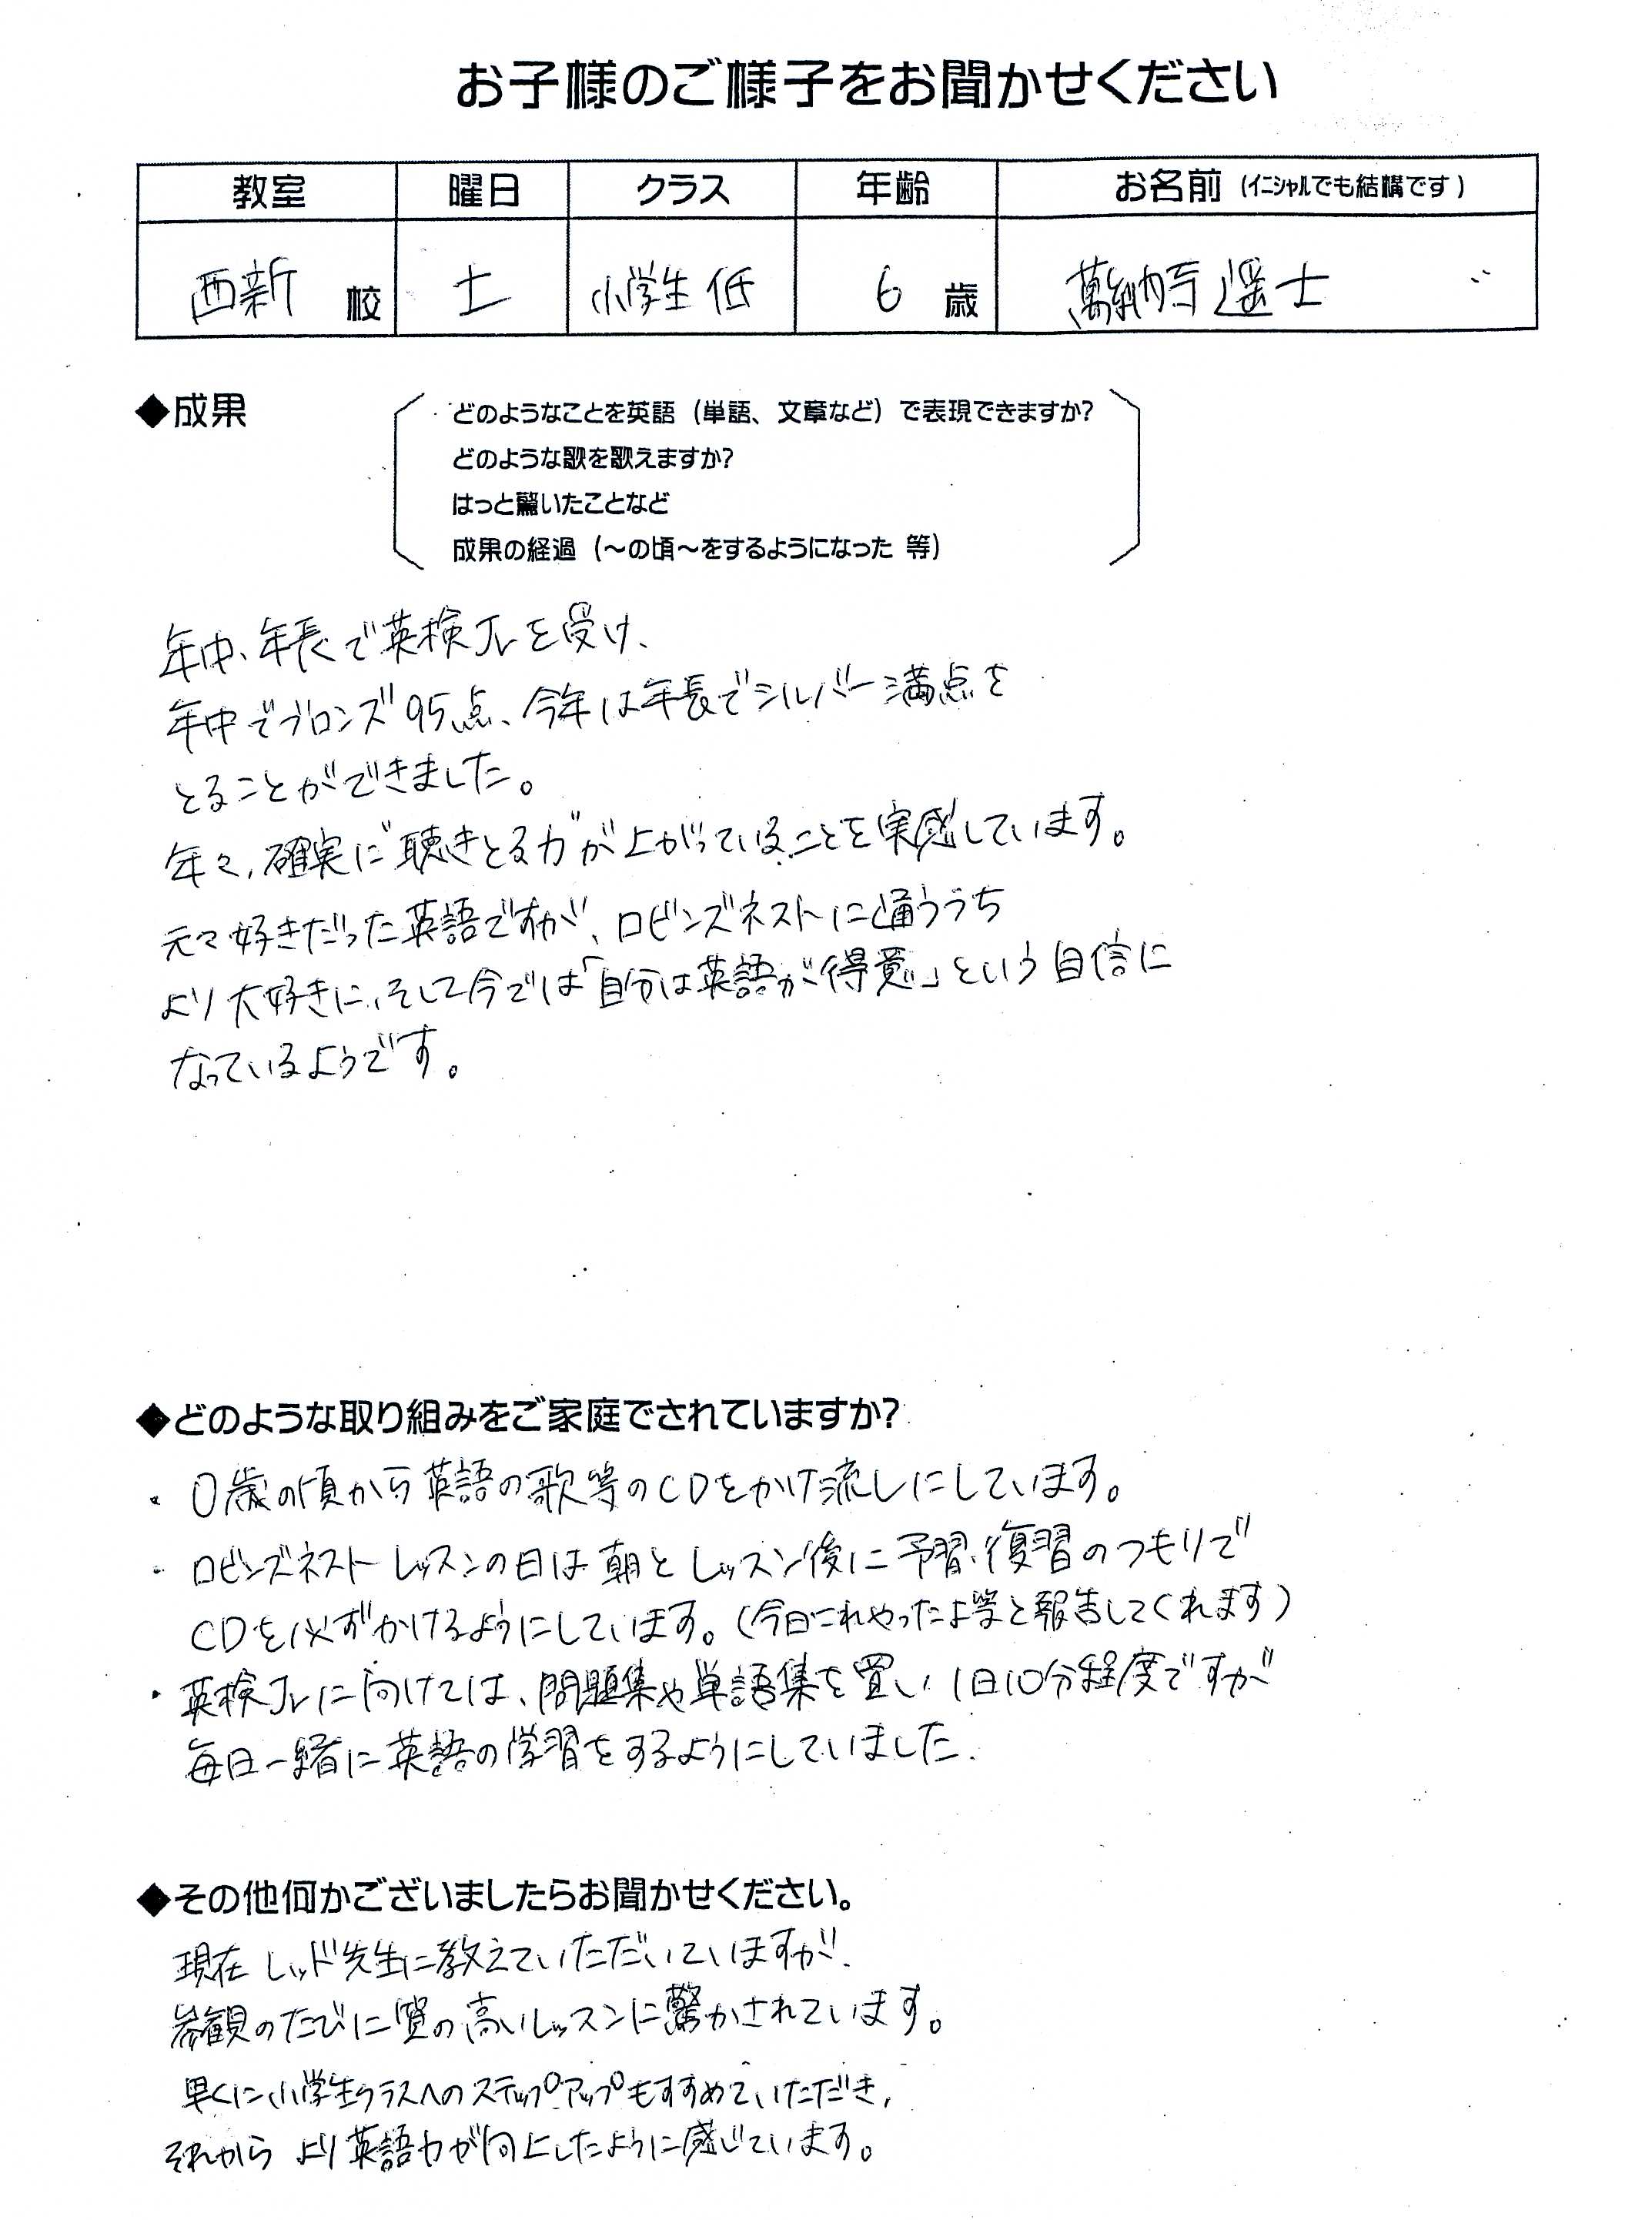 お子様のご様子をお聞かせください
教室 曜日 クラス 年齢 お名前 (ｲﾆｼｬﾙでも結構です)
西新 校 土 小学生 低 6 歳 萬納寺 遥士
◆成果
どのようなことを英語 (単語、文章など) で表現できますか?
どのような歌を歌えますか?
はっと驚いたことなど
成果の経過 (～の頃～をするようになった 等)
年中、年長で英検Jrを受け、
年中でブロンズ95点、今年は年長でシルバー満点を
とることができました。
年々、確実に"聴きとる力"が上がっていることを実感しています。
元々好きだった英語ですが、ロビンズネストに通ううち
より大好きに、そして今では「自分は英語が得意」という自信に
なっているようです。
◆どのような取り組みをご家庭でされていますか?
・0歳の頃から英語の歌等のCDをかけ流しにしています。
・ロビンズネスト レッスンの日は朝とレッスン後に予習、復習のつもりで
CDを必ずかけるようにしています。(今日これやったよ等と報告してくれます)
・英検Jrに向けては、問題集や単語集を買い 1日10分程度ですが
毎日一緒に英語の学習をするようにしていました.
◆その他何かございましたらお聞かせください。
現在 レッド先生に教えていただいていますが、
参観のたびに質の高いレッスンに驚かされています。
早くに小学生クラスへのステップアップもすすめていただき、
それから より英語力が向上したように感じています。